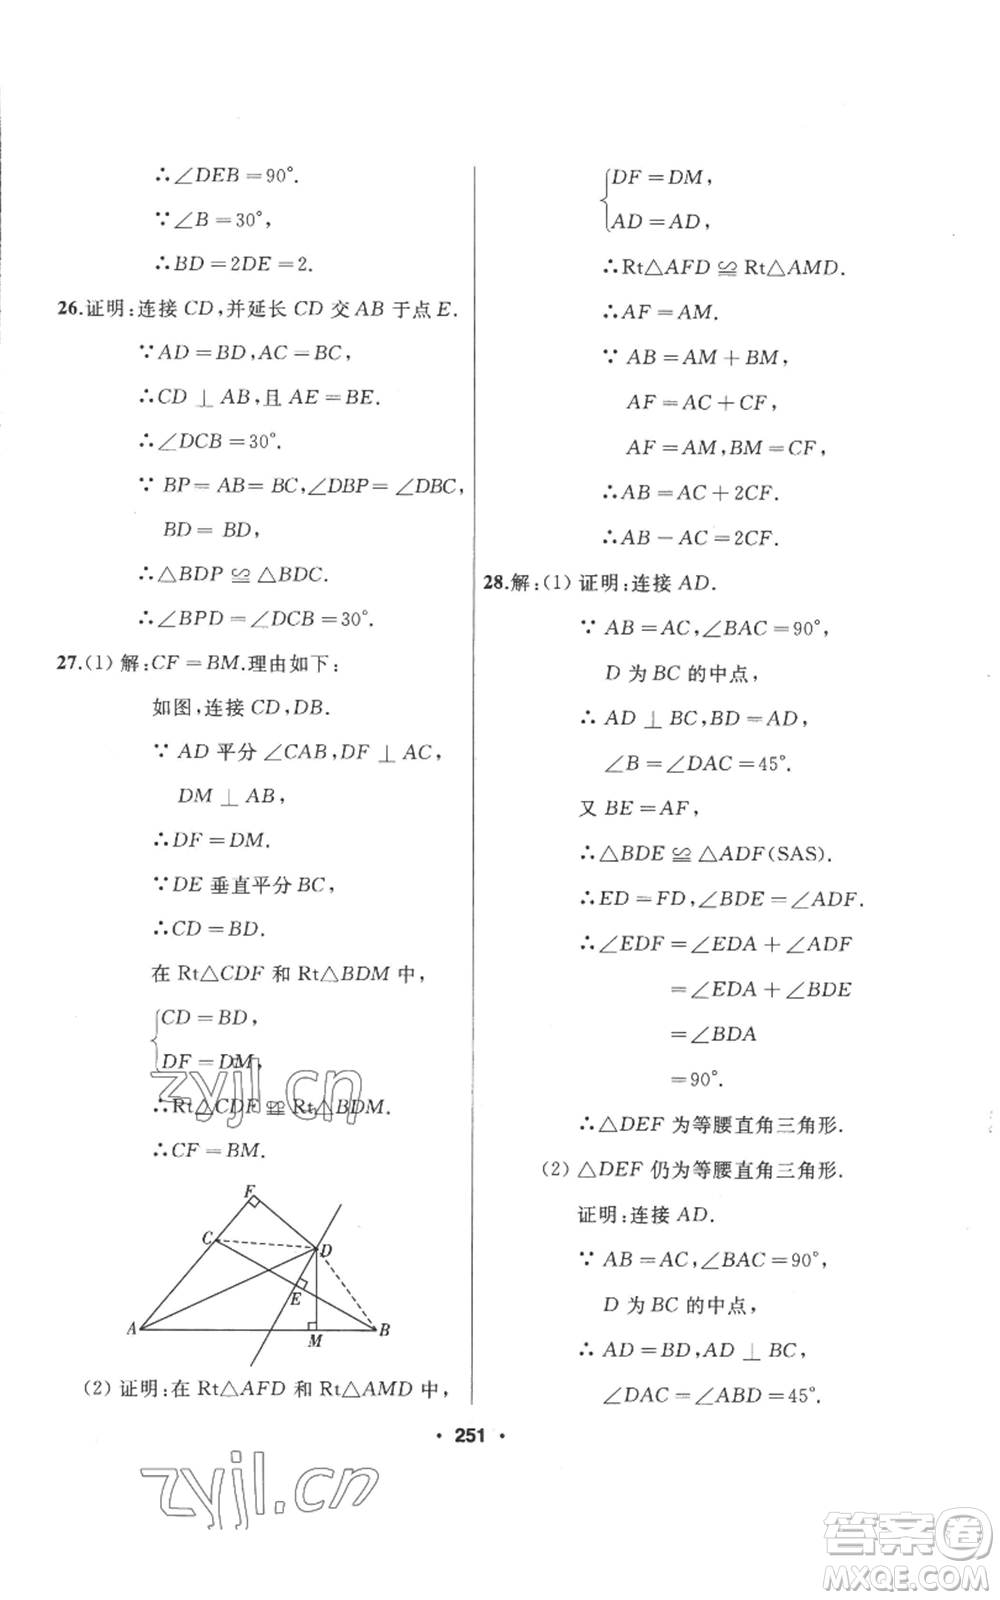 ∴∠DEB=90°.
∵∠B=30°,
∴BD=2DE=2.
26.证明:连接 CD,并延长 CD 交 AB 于点 E.
∵AD=BD,AC=BC,
∴CD⊥AB,且 AE=BE.
∴∠DCB=30°.
∵ BP=AB=BC,∠DBP=∠DBC,
BD=BD,
∴△BDP≌△BDC.
∴∠BPD=∠DCB=30°.
27.(1)解:CF=BM.理由如下:
如图,连接 CD,DB.
∵ AD 平分∠CAB,DF⊥AC,
DM⊥AB,
∴DF=DM.
∵DE 垂直平分 BC,
∴CD=BD.
在 Rt△CDF 和 Rt△BDM 中,
CD=BD,
DF=DM,
∴Rt△CDF≌Rt△BDM.
∴CF=BM.
F
C
D
E
A
M
B
(2)证明:在 Rt△AFD 和 Rt△AMD 中,
DF=DM,
AD=AD,
∴Rt△AFD≌Rt△AMD.
∴AF=AM.
∵ AB=AM+BM,
AF=AC+CF,
AF=AM,BM=CF,
∴AB=AC+2CF.
∴AB-AC=2CF.
28.解:(1)证明:连接 AD.
∵ AB=AC,∠BAC=90°,
D 为 BC 的中点,
∴ AD⊥BC,BD=AD,
∠B=∠DAC=45°.
又 BE=AF,
∴△BDE≌△ADF(SAS).
∴ED=FD,∠BDE=∠ADF.
∴∠EDF=∠EDA+∠ADF
=∠EDA+∠BDE
=∠BDA
=90°.
∴△DEF 为等腰直角三角形.
(2)△DEF 仍为等腰直角三角形.
证明:连接 AD.
∵ AB=AC,∠BAC=90°,
D 为 BC 的中点,
∴ AD=BD,AD⊥BC,
∠DAC=∠ABD=45°.
· 251 ·
zyjl.cn
zyjl.cn
答案卷
MXQE.COM